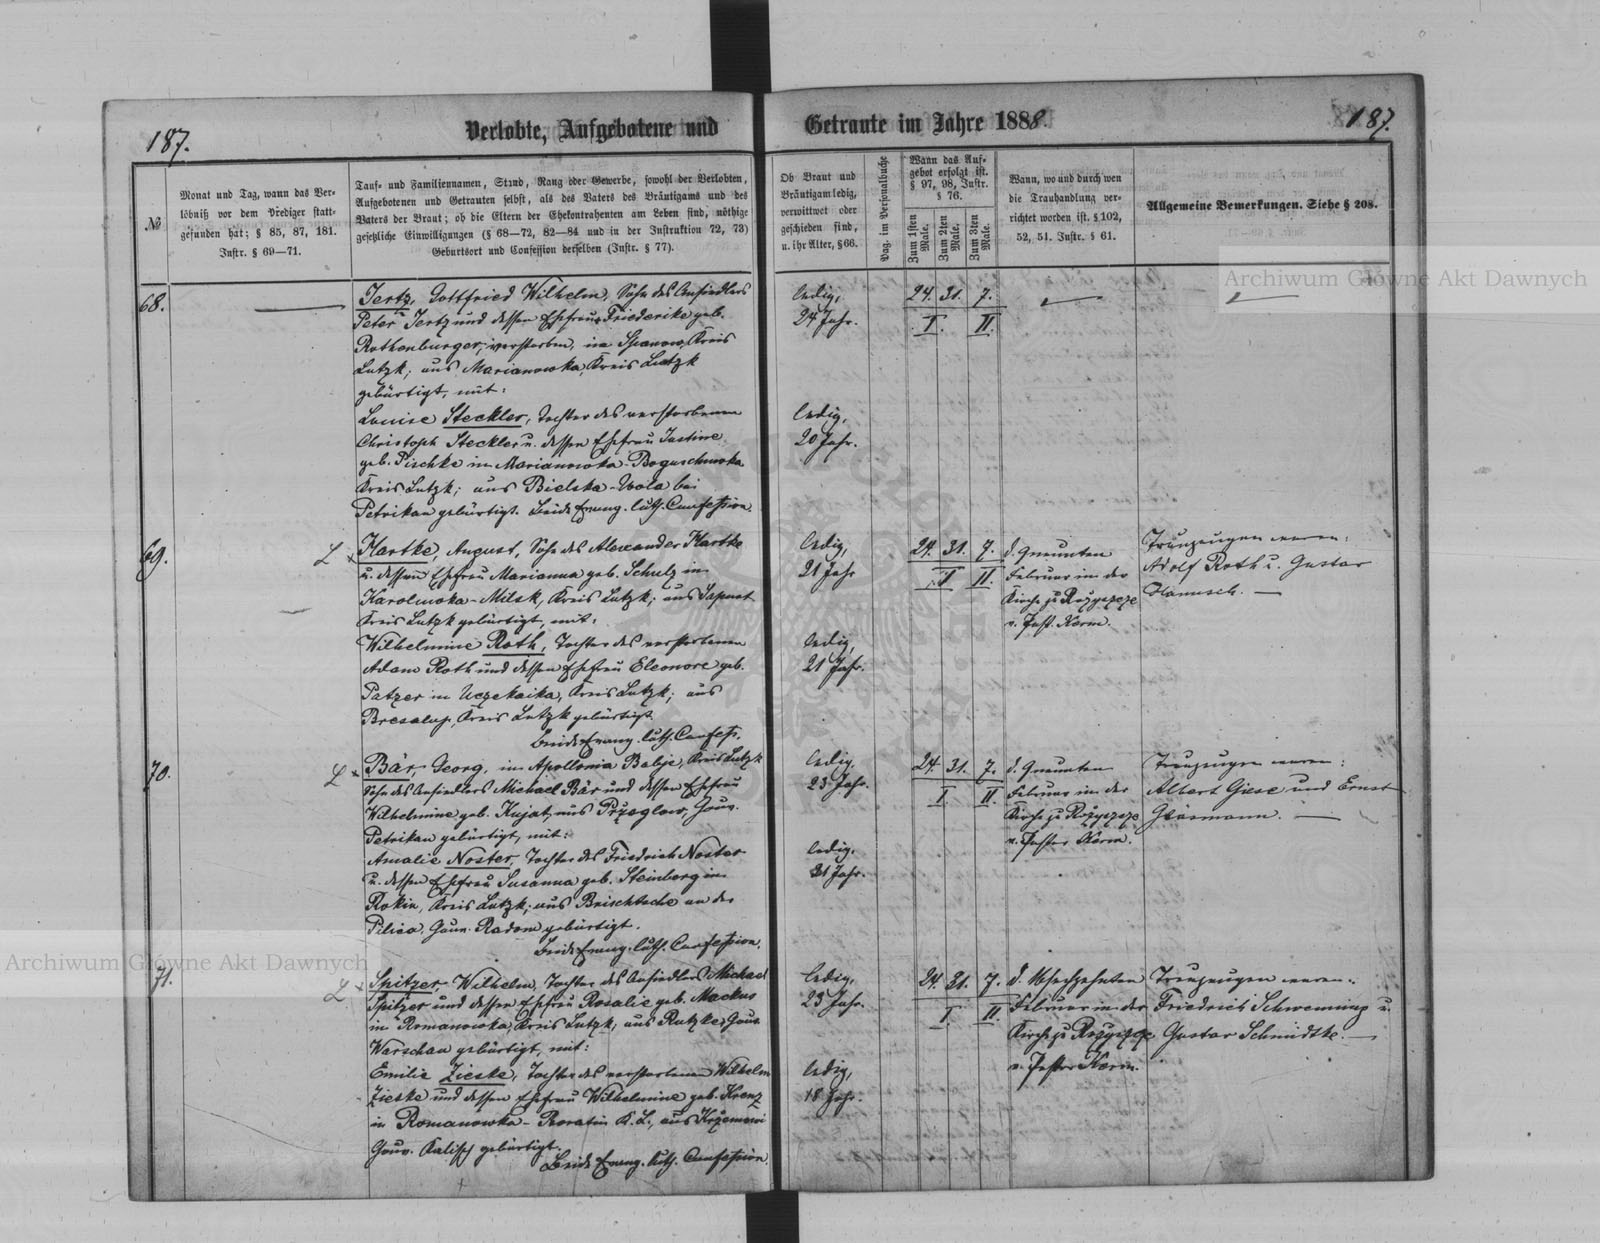 187.
Verlobte, Aufgebotene und
Getraute im Jahre 1888.
187.
№
Monat und Tag, wann das Ver-
löbniß vor dem Prediger statt-
gefunden hat; § 85, 87, 181.
Instr. § 69—71.
Tauf- und Familiennamen, Stand, Rang oder Gewerbe, sowohl der Verlobten,
Aufgebotenen und Getrauten selbst, als des Vaters des Bräutigams und des
Vaters der Braut; ob die Eltern der Ehekontrahenten am Leben sind, nöthige
gesetzliche Einwilligungen (§ 68—72, 82—84 und in der Instruktion 72, 73)
Geburtsort und Confession derselben (Instr. § 77).
Ob Braut und
Bräutigam ledig,
verwittwet oder
geschieden sind,
u. ihr Alter, § 66.
Pag. im Personalbuche
Wann das Auf-
gebot erfolgt ist.
§ 97, 98, Instr.
§ 76.
Zum 1sten Male.
Zum 2ten Male.
Zum 3ten Male.
Wann, wo und durch wen
die Trauhandlung ver-
richtet worden ist. § 102,
52, 51. Instr. § 61.
Allgemeine Bemerkungen. Siehe § 208.
68.
Jertz, Gottfried Wilhelm, Sohn des Ansiedlers
Peter Jertz und dessen Ehefrau Friederike geb.
Rothenburger, verstorben, in Spanow, Kreis
Lutzk; aus Marianowka, Kreis Lutzk
gebürtigt, mit:
Louise Steckler, Tochter des verstorbenen
Christoph Steckler u. dessen Ehefrau Justine
geb. Pischke in Marianowka-Boguschowka
Kreis Lutzk; aus Bielska-Wola bei
Petrikau gebürtigt. Beide Evang. luth. Confession.
ledig,
24 Jahr.
24. 31. 7.
I. II.
ledig,
20 Jahr.
69.
Hartke, August, Sohn des Alexander Hartke
u. dessen Ehefrau Marianna geb. Schulz in
Karolinwka-Milsk, Kreis Lutzk; aus Sapust
Kreis Lutzk gebürtigt, mit:
Wilhelmine Roth, Tochter des verstorbenen
Adam Roth und dessen Ehefrau Eleonore geb.
Patzer in Uczekaika, Kreis Lutzk; aus
Bresalup, Kreis Lutzk gebürtigt.
Beide Evang. luth. Confess.
ledig,
21 Jahr
ledig,
21 Jahr.
24. 31. 7.
I II.
d. Neunten
Februar in der
Kirche zu Rożyszcze
v. Past. Kerm.
Trauzeugen waren:
Adolf Roth u. Gustav
Hannsch. —
70.
Bär, Georg, in Apollonia Balje, Kreis Lutzk
Sohn des Ansiedlers Michael Bär und dessen Ehefrau
Wilhelmine geb. Kujat, aus Przyglow, Gouv.
Petrikau gebürtigt, mit:
Amalie Noster, Tochter des Friedrich Noster
u. dessen Ehefrau Susanna geb. Steinberg in
Rokin, Kreis Lutzk; aus Brischtsche an der
Pilica, Gouv. Radom gebürtigt.
Beide Evang. luth. Confession.
ledig,
23 Jahr.
ledig,
21 Jahr.
24. 31. 7.
I II.
d. Neunten
Februar in der
Kirche zu Rożyszcze
v. Pastor Kerm.
Trauzeugen waren:
Albert Giese und Ernst
Gläsmann. —
71.
Spitzer, Wilhelm, Tochter des Ansiedlers Michael
Spitzer und dessen Ehefrau Rosalie geb. Mackus
in Romanowka, Kreis Lutzk; aus Rutzke, Gouv.
Warschau gebürtigt, mit:
Emilie Zieske, Tochter des verstorbenen Wilhelm
Zieske und dessen Ehefrau Wilhelmine geb. Krenz
in Romanowka-Boratin K. L., aus Krzemewi
Gouv. Kalisch gebürtigt.
Beide Evang. luth. Confession.
ledig,
23 Jahr.
ledig,
18 Jahr.
24. 31. 7.
I. II.
d. Sechzehnten
Februar in der
Kirche zu Rożyszcze
v. Pastor Kerm.
Trauzeugen waren:
Friedrich Schwemming u.
Gustav Schmidtke. —
Archiwum Główne Akt Dawnych
Archiwum Główne Akt Dawnych